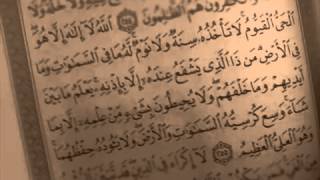 هُمُ ٱلظَّٰلِمُونَ ٢٥٤ ٱللَّهُ لَآ إِلَٰهَ إِلَّا هُوَ
ٱلْحَىُّ ٱلْقَيُّومُ لَا تَأْخُذُهُۥ سِنَةٌ وَلَا نَوْمٌ لَّهُۥ مَا فِى ٱلسَّمَٰوَٰتِ وَمَا
فِى ٱلْأَرْضِ مَن ذَا ٱلَّذِى يَشْفَعُ عِندَهُۥٓ إِلَّا بِإِذْنِهِۦ يَعْلَمُ مَا بَيْنَ
أَيْدِيهِمْ وَمَا خَلْفَهُمْ وَلَا يُحِيطُونَ بِشَىْءٍ مِّنْ عِلْمِهِۦٓ إِلَّا بِمَا
شَآءَ وَسِعَ كُرْسِيُّهُ ٱلسَّمَٰوَٰتِ وَٱلْأَرْضَ وَلَا يَـُٔودُهُۥ حِفْظُهُمَا
وَهُوَ ٱلْعَلِىُّ ٱلْعَظِيمُ ٢٥٥ لَآ إِكْرَاهَ فِى ٱلدِّينِ